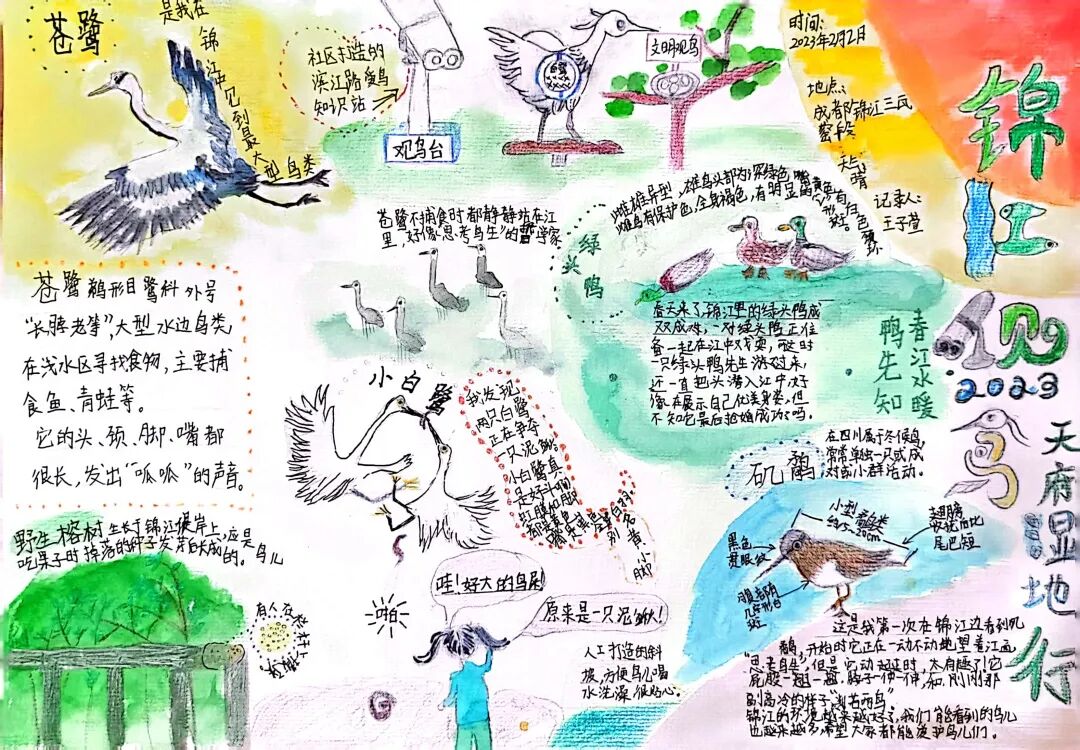 苍鹭
是我在锦江中见到最大型鸟类
社区打造的
滨江路爱鸟
知识站
观鸟台
白鹭
文明观鸟
时间:
2023年2月2日
地点:
成都锦江三瓦
窑段
天气:晴
记录人:
王子萱
锦江见鸟
2023
天府湿地行
苍鹭不捕食时都静静站在江
里,好像"思考鸟生"的哲学家
苍鹭 鹈形目鹭科 外号
"长脖老等",大型水边鸟类,
在浅水区寻找食物,主要捕
食鱼、青蛙等。
它的头、颈、脚、嘴都
很长,发出"呱呱"的声音。
绿头鸭
雌雄异型,雄鸟头部为深绿色
雌鸟有保护色,全身褐色,有明显的
春天来了锦江里的绿头鸭成
双成对,一对绿头鸭正准
备一起在江中戏耍,而这时
一只绿头鸭先生游过来,
还一直把头潜入江中,好
像在展示自己优美身姿,但
不知它最后抢婚成功了吗。
春江水暖
鸭先知
小白鹭
我发现
两只白鹭
正在争夺
一只泥鳅。
小白鹭真
是好斗啊
矶鹬
在四川属于冬候鸟,
常常单独一只或成
对或小群活动。
小型鸟类
约15-20cm
翅膀
收拢后比
尾巴短
黑色
贯眼纹
野生榕树 生长于锦江堰岸上,应是鸟儿
吃果子时掉落的种子发芽长成的。
有人在栏杆上
哇!好大的鸟屎!
原来是一只泥鳅!
啪
人工打造的斜
坡,方便鸟儿喝
水洗澡,很贴心。
这是我第一次在锦江边看到矶
鹬,开始时它正在一动不动地望着江面
"思考鸟生",但是它动起来时,太有趣了!它
屁股一翘一翘,脖子一伸一伸,和刚刚那
副高冷的样子"判若两鸟"。
锦江的环境越来越好了,我们能看到的鸟儿
也越来越多,希望大家都能爱护鸟儿们。